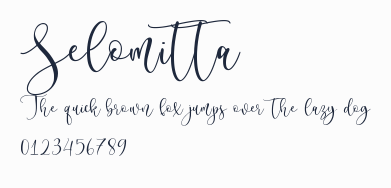 Selomitta
The quick brown fox jumps over the lazy dog
0123456789